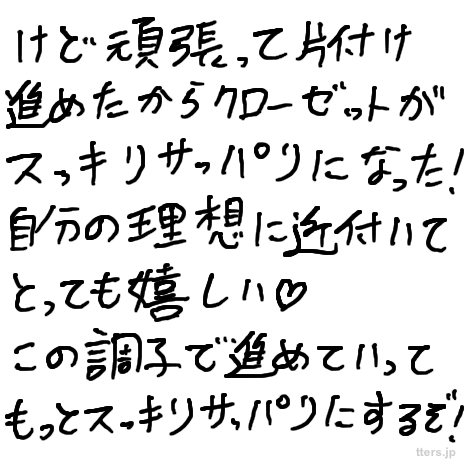 けど頑張って片付け
進めたからクローゼットが
スッキリサッパリになった!
自分の理想に近付いて
とっても嬉しい♡
この調子で進めていって
もっとスッキリサッパリにするぞ!
tters.jp